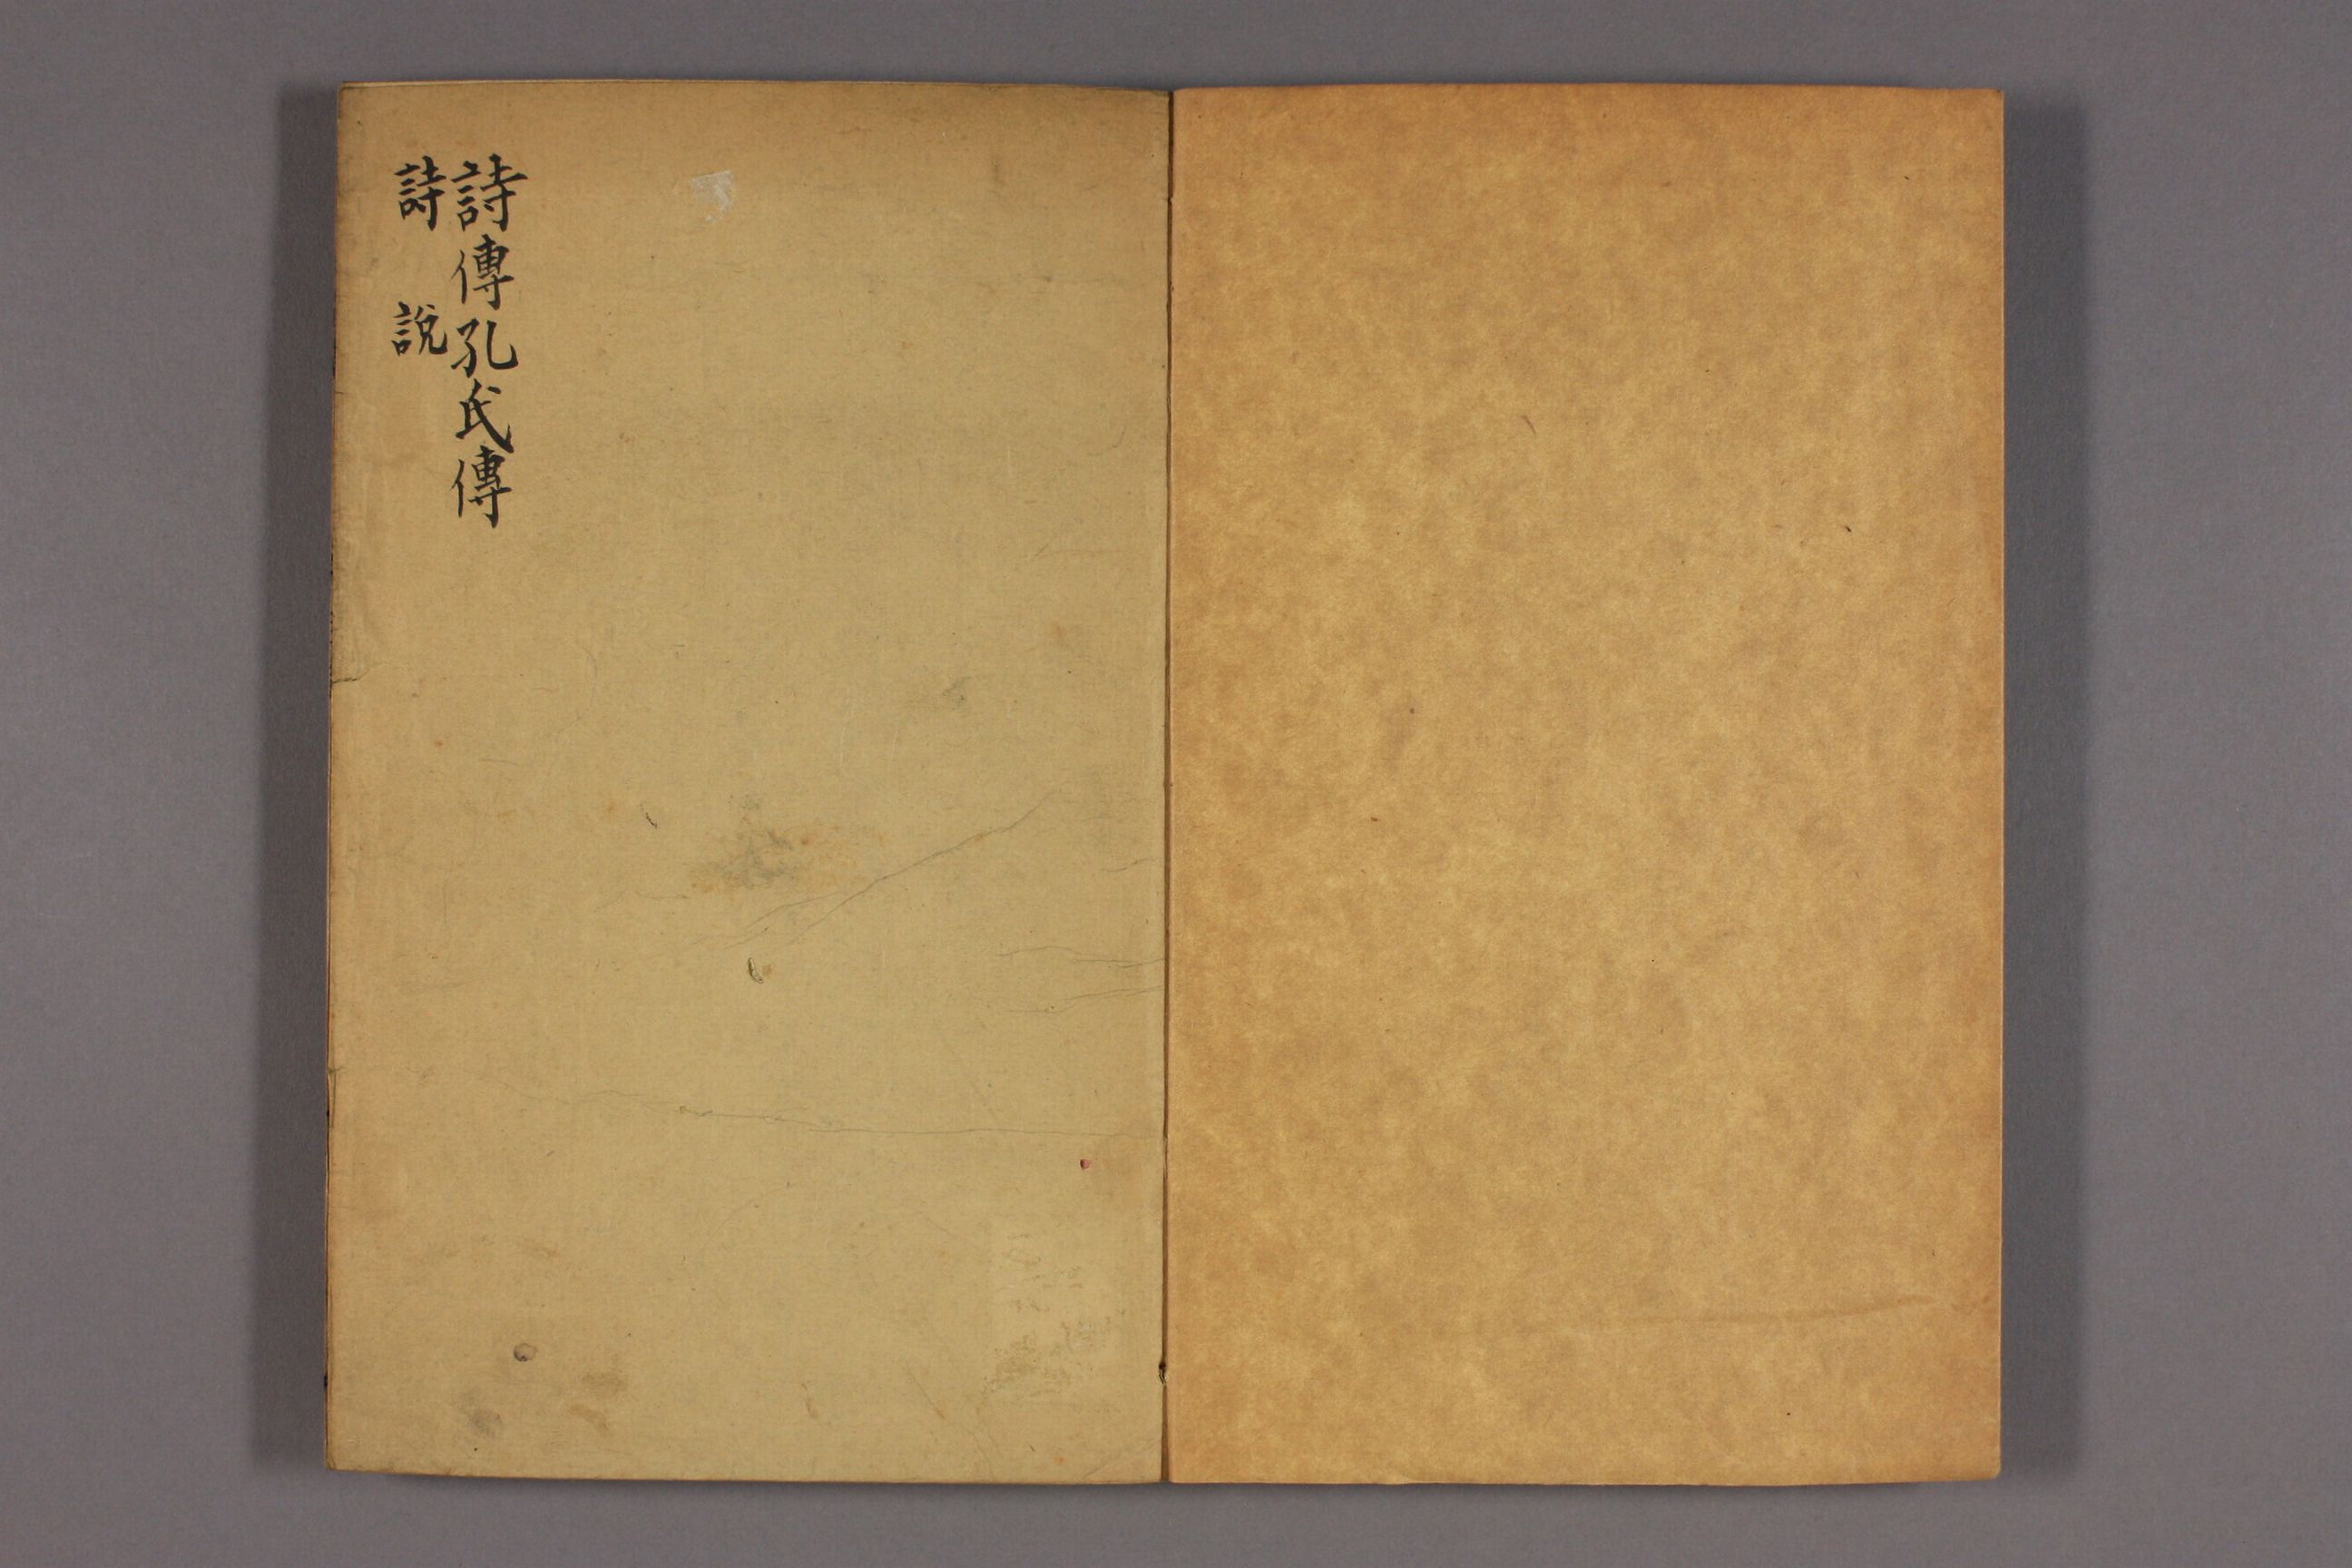 詩傳孔氏傳
詩說